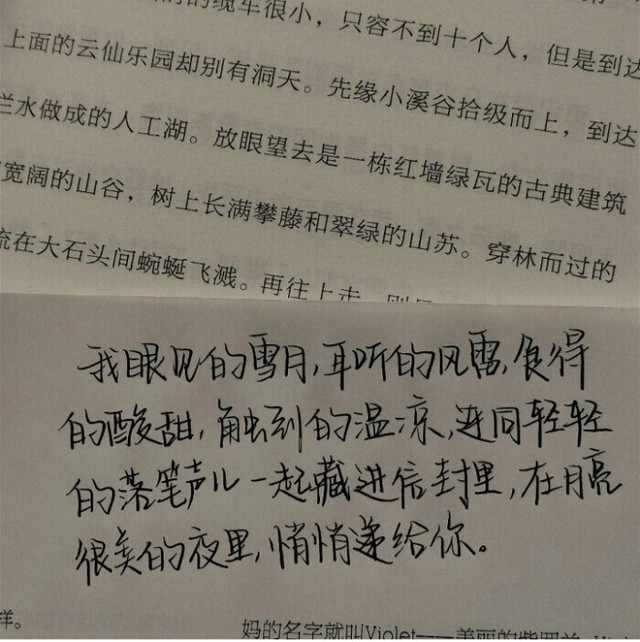 的缆车很小，只容不到十个人，但是到达
上面的云仙乐园却别有洞天。先缘小溪谷拾级而上，到达
拦水做成的人工湖。放眼望去是一栋红墙绿瓦的古典建筑
宽阔的山谷，树上长满攀藤和翠绿的山苏。穿林而过的
流在大石头间蜿蜒飞溅。再往上走
我眼见的雪月,耳听的风雷,食得
的酸甜,触到的温凉,连同轻轻
的落笔声儿一起藏进信封里,在月亮
很美的夜里,悄悄递给你。
样。
妈的名字就叫Violet——美丽的紫罗兰